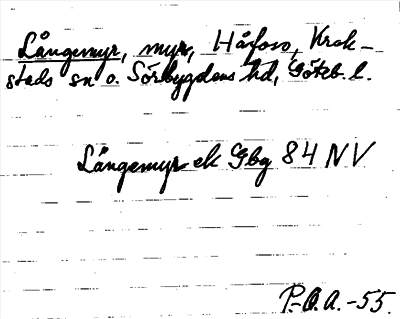 Långemyr, myr, Håfoss, Krok-
stads sn o. Sörbygdens hd, Göteb. l.
Långemyr ek Gbg 84 NV
P.-O.A. -55.